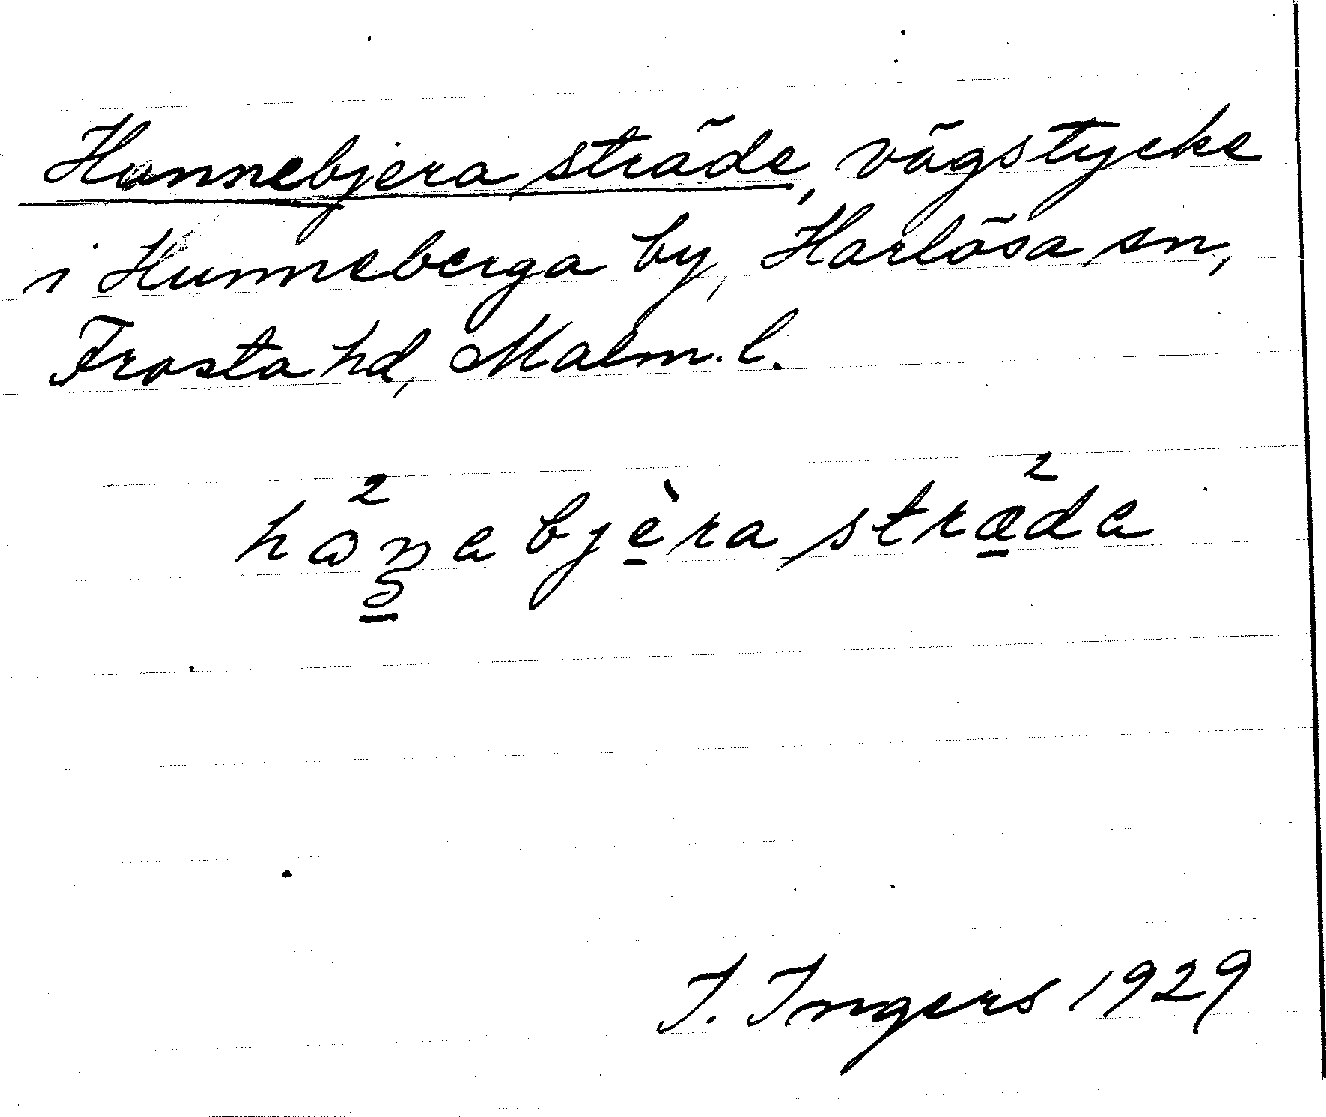 Hunnebjera sträde, vägstycke
i Hunneberga by, Harlösa sn,
Frosta hd, Malm. l.
bjèra
I. Ingers 1929